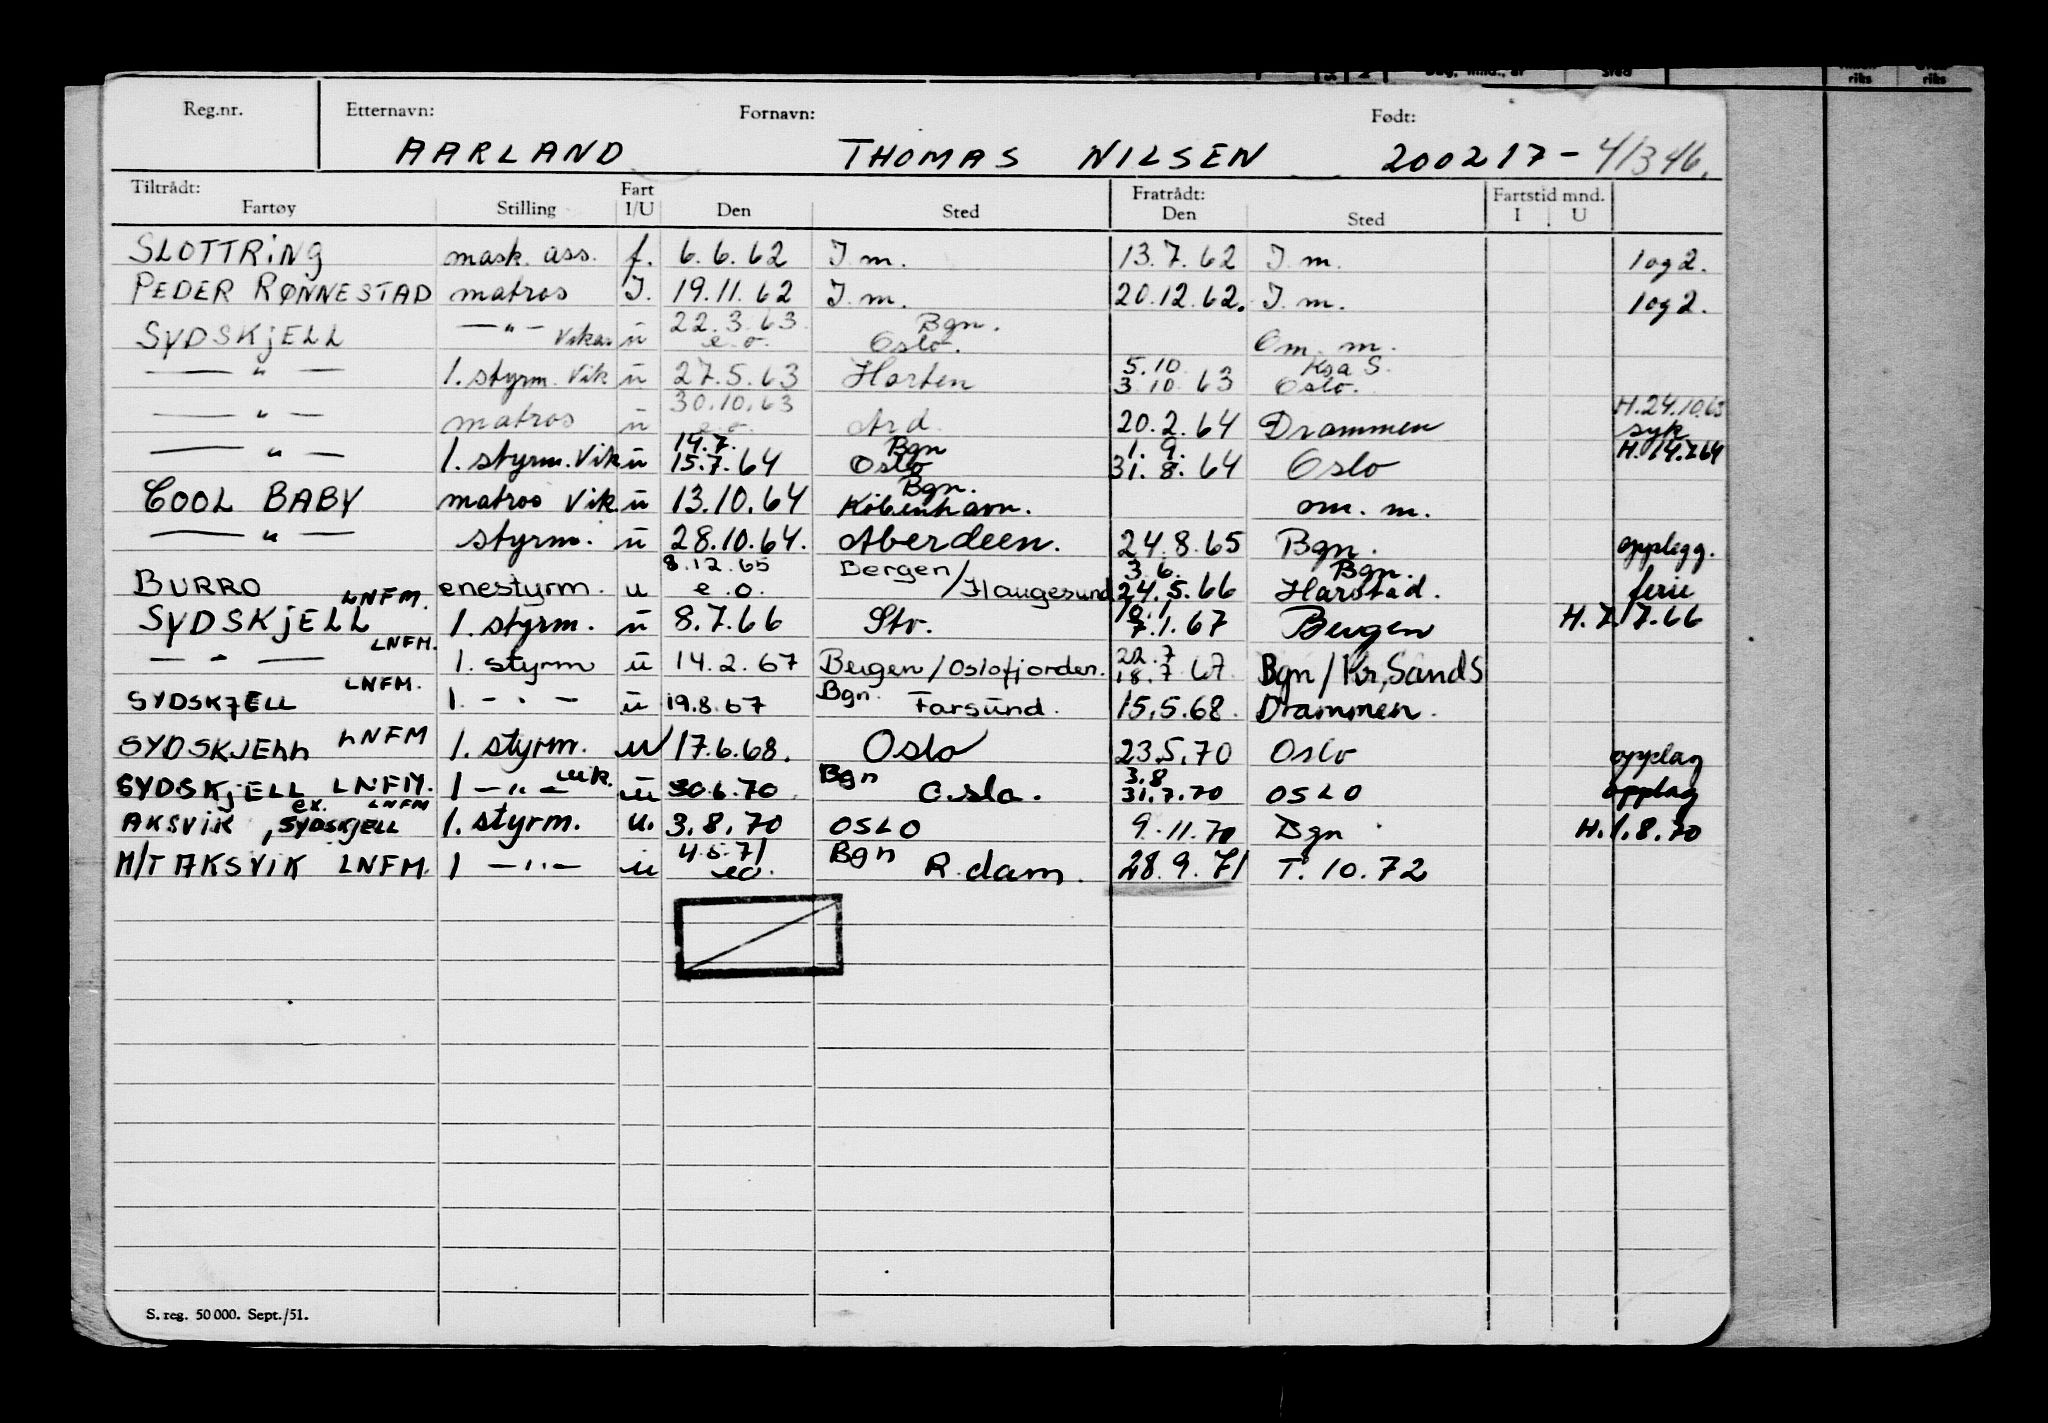 Reg.nr. Etternavn: Fornavn: Født:
AARLAND THOMAS NILSEN 200217-41346.
Tiltrådt: Fart Fratrådt: Fartstid mnd.
Fartøy Stilling I/U Den Sted Den Sted I U
SLOTTRiNG mask. ass. f. 6.6.62 I.m. 13.7.62 I.m. 1og2.
PEDER RØNNESTAD matros I. 19.11.62 I.m. 20.12.62. I.m. 1og2.
22.3.63. Bgn.
SYDSKjELL —"— Vikar u e.o. Oslo. Om. m.
5.10 Ksa S.
—"— 1. styrm. Vik u 27.5.63 Horten 3.10.63 Oslo.
30.10.63 H.24.10.63
—"— matros u e.o. Ard. 20.2.64 Drammen syk
14.7. Bgn 1.9. H.14.7.64
—"— 1. styrm. Vik u 15.7.64 Oslo 31.8.64 Oslo
Bgn.
COOL BABY matros Vik. u 13.10.64 Köbenhavn. om. m.
—"— styrm. u 28.10.64. Aberdeen. 24.8.65 Bgn. opplegg.
8.12.65 Bergen/ 3.6. Bgn.
BURRO enestyrm. u e.o. Haugesund 24.5.66 Harstad. ferie
LNFM.
SYDSKjELL 1. styrm. u 8.7.66 Stv. 7.1.67 Bergen H.7.7.66
LNFM. 22.7
—"— 1. styrm u 14.2.67 Bergen/Oslofjorden. 18.7.67 Bgn/Kr,SandS
LNFM. Bgn.
SYDSKJELL 1. —"— u 19.8.67 Farsund. 15.5.68. Drammen.
SYDSKJELL LNFM 1. styrm. u 17.6.68. Oslo 23.5.70 Oslo opplag
vik. Bgn 3.8
SYDSKjELL LNFM. 1 —"— u 30.6.70 Oslo. 31.7.70 OSLO opplag
ex. LNFM
AKSVIK, SYDSKJELL 1. styrm. u. 3.8.70 OSLO 9.11.70 Bgn H.1.8.70
4.5.71 Bgn
M/T AKSVIK LNFM. 1 —"— u eo. R.dam. 28.9.71 T. 10.72
S. reg. 50 000. Sept./51.